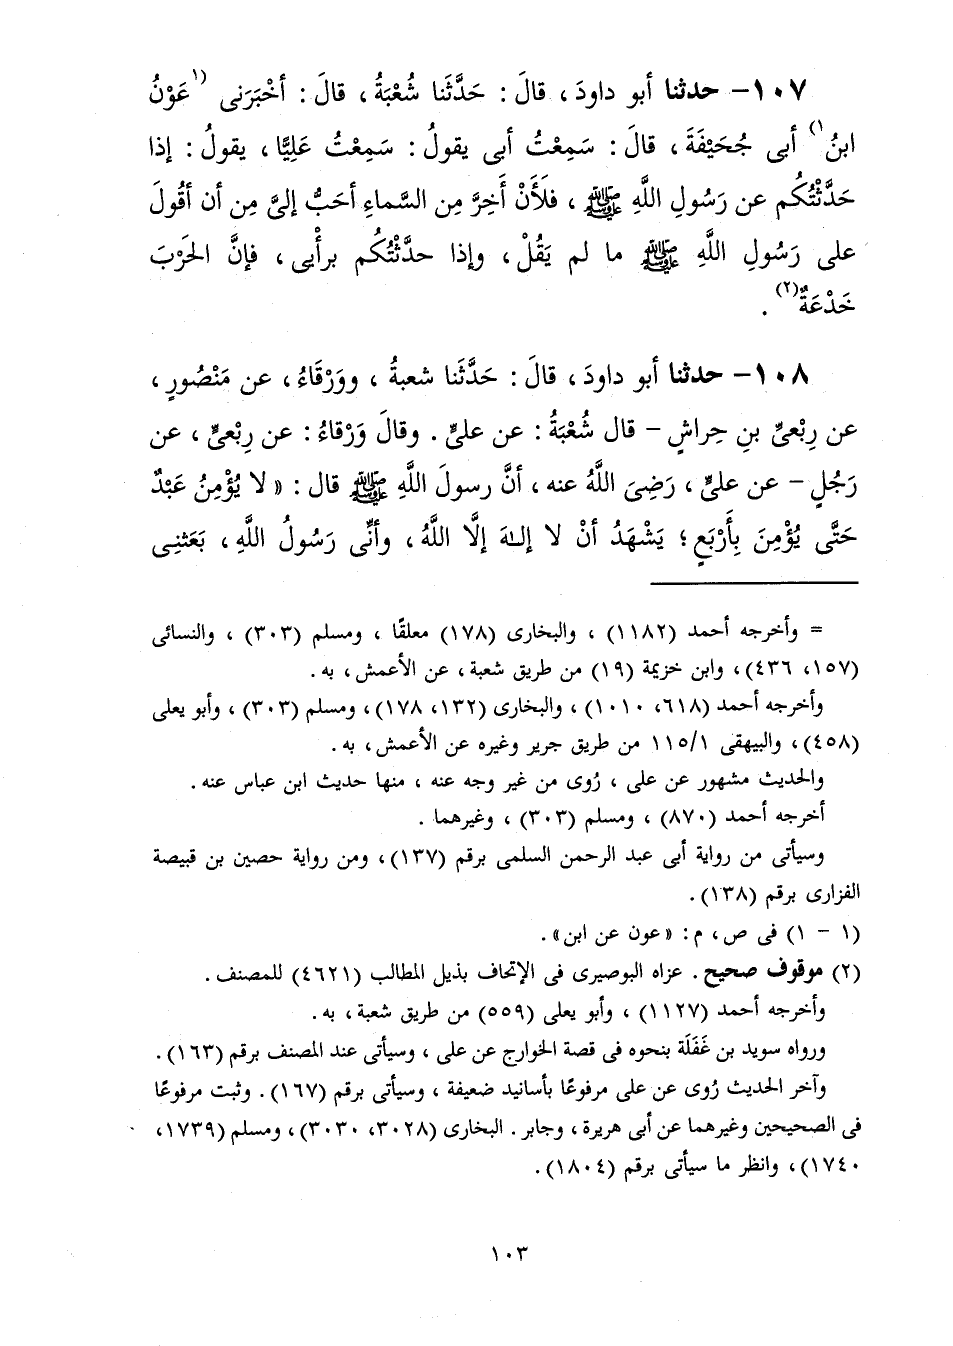 ١٠٧- حدثنا أبو داودَ ، قالَ : حَدَّثَنا شُعْبَةُ ، قالَ : أخْبَرَنى (١عَوْنُ
ابنُ١) أبى جُحَيْفَةَ ، قالَ : سَمِعْتُ أبى يقولُ : سَمِعْتُ عَلِيًّا ، يقولُ : إذا
حَدَّثْتُكُم عن رَسُولِ اللَّهِ ﷺ ، فلَأَنْ أَخِرَّ مِن السَّماءِ أحَبُّ إلىَّ مِن أن أقُولَ
على رَسُولِ اللَّهِ ﷺ ما لم يَقُلْ ، وإذا حدَّثْتُكُم برأْيى ، فإنَّ الحَرْبَ
خَدْعَةٌ(٢) .
١٠٨- حدثنا أبو داودَ ، قالَ : حَدَّثَنا شعبةُ ، ووَرْقَاءُ ، عن مَنْصُورٍ ،
عن رِبْعىِّ بنِ حِراشٍ - قال شُعْبَةُ : عن علىٍّ . وقالَ وَرْقاءُ : عن رِبْعىٍّ ، عن
رَجُلٍ - عن علىٍّ ، رَضِىَ اللَّهُ عنه ، أنَّ رسولَ اللَّهِ ﷺ قال : « لا يُؤْمِنُ عَبْدٌ
حَتَّى يُؤْمِنَ بِأَرْبَعٍ ؛ يَشْهَدُ أنْ لا إلـٰهَ إلَّا اللَّهُ ، وأنِّى رَسُولُ اللَّهِ ، بَعَثَنِى
= وأخرجه أحمد (١١٨٢) ، والبخارى (١٧٨) معلقًا ، ومسلم (٣٠٣) ، والنسائى
(١٥٧، ٤٣٦) ، وابن خزيمة (١٩) من طريق شعبة ، عن الأعمش ، به .
وأخرجه أحمد (٦١٨، ١٠١٠) ، والبخارى (١٣٢، ١٧٨) ، ومسلم (٣٠٣) ، وأبو يعلى
(٤٥٨) ، والبيهقى ١١٥/١ من طريق جرير وغيره عن الأعمش ، به .
والحديث مشهور عن على ، رُوى من غير وجه عنه ، منها حديث ابن عباس عنه .
أخرجه أحمد (٨٧٠) ، ومسلم (٣٠٣) ، وغيرهما .
وسيأتى من رواية أبى عبد الرحمن السلمى برقم (١٣٧) ، ومن رواية حصين بن قبيصة
الفزارى برقم (١٣٨) .
(١ - ١) فى ص ، م : «عون عن ابن» .
(٢) موقوف صحيح . عزاه البوصيرى فى الإتحاف بذيل المطالب (٤٦٢١) للمصنف .
وأخرجه أحمد (١١٢٧) ، وأبو يعلى (٥٥٩) من طريق شعبة ، به .
ورواه سويد بن غَفَلَة بنحوه فى قصة الخوارج عن على ، وسيأتى عند المصنف برقم (١٦٣) .
وآخر الحديث رُوى عن على مرفوعًا بأسانيد ضعيفة ، وسيأتى برقم (١٦٧) . وثبت مرفوعًا
فى الصحيحين وغيرهما عن أبى هريرة ، وجابر . البخارى (٣٠٢٨، ٣٠٣٠) ، ومسلم (١٧٣٩،
١٧٤٠) ، وانظر ما سيأتى برقم (١٨٠٤) .
١٠٣